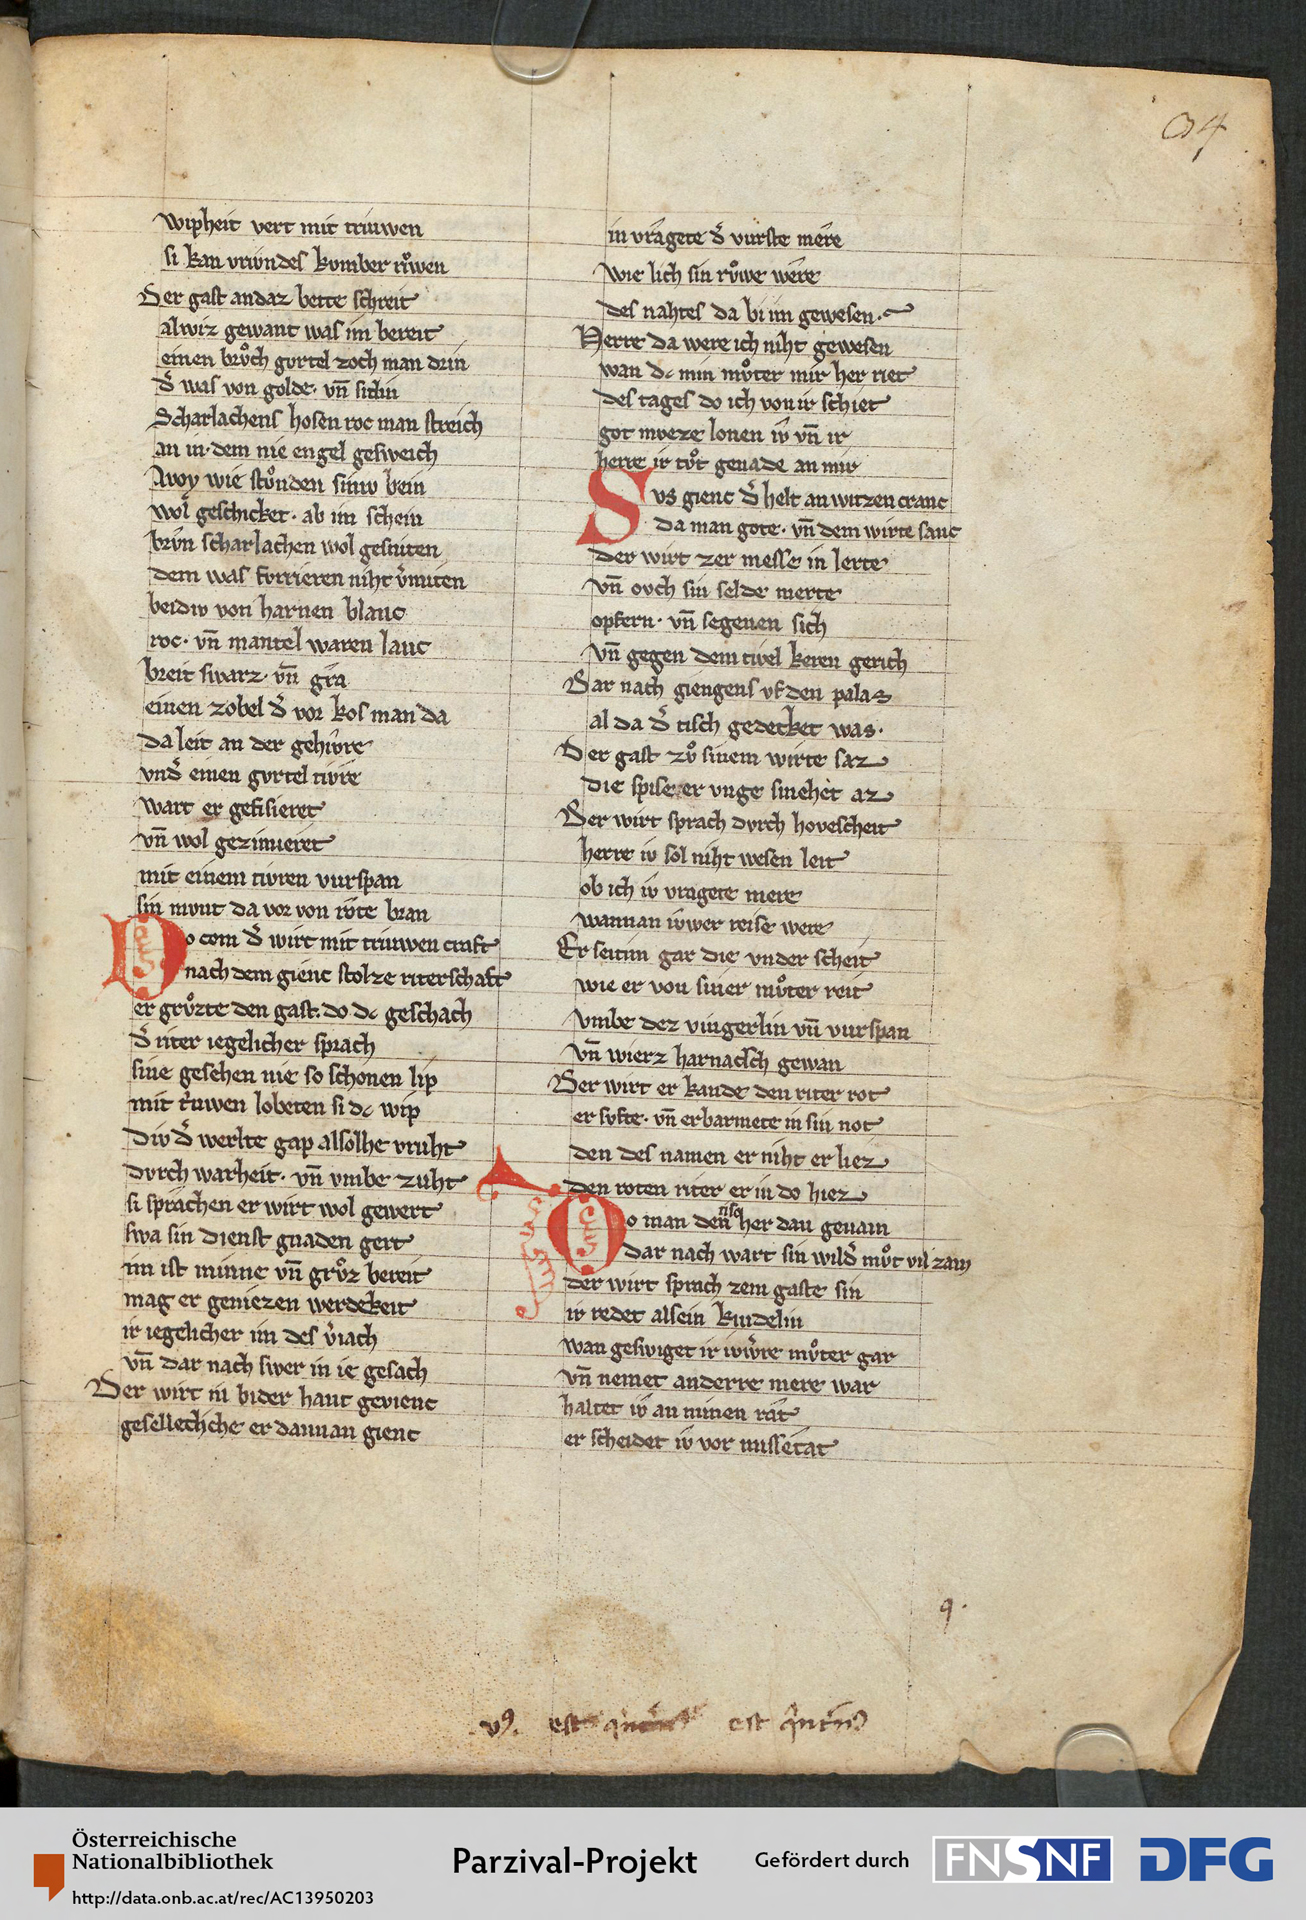 34
wipheit vert mit triuwen
si kan vriundes kvmber rͦwen
Der gast an daz bette schreit
alwiz gewant was im bereit
einen brvͦch gortel zoch man drin
d̾ was von golde· vn̄ sidin
Scharlachens hosen roc man streich
an in· dem nie engel gesweich
Avoy wie stvͦnden siniv bein
wol geschicket· ab im schein
brvn scharlachen wol gesniten
dem was fvrrieren niht v̾miten
beidiv von harnen blanc
roc· vn̄ mantel waren lanc
breit swarz· vn̄ gra
einen zobel d̾ vor kos man da
da leit an der gehivre
vnd̾ einen gvrtel tivre
wart er gefisieret
vn̄ wol gezimieret
mit einem tivren vurspan
sin mvnt da vor von rote bran
Do com d̾ wirt mit triuwen craft
nach dem gienc stolze riterschaft
er grvͦzte den gast· do dc geschach
d̾ riter iegelicher sprach
sine gesehen nie so schonen lip
mit triuwen lobeten si dc wip
Div d̾ werlte gap alsolhe vruht
dvrch warheit· vn̄ vmbe zuht
si sprachen er wirt wol gewert
swa sin dienst gnaden gert
im ist minne vn̄ grvͦz bereit
mag er geniezen werdekeit
ir iegelicher im des v̾iach
vn̄ dar nach swer in ie gesach
Der wirt in bi der hant gevienc
geselleclhche er dannan gienc
in vragete d̾ vurste mere
wie lich sin rvͦwe were
des nahtes da bi im gewesen·
Herre da were ich niht gewesen
wan dc min mvͦter mir her riet
des tages do ich von ir schiet
got mveze lonen iv vn̄ ir
herre ir tvͦt genade an mir
Svs gienc d̾ helt an witzen cranc
da man gote· vn̄ dem wirte sanc
der wirt zer messe in lerte
vn̄ ovch sin selde merte
opfern· vn̄ segenen sich
vn̄ gegen dem tivel keren gerich
Dar nach giengens vf den palas
al da d̾ tisch gedecket was·
Der gast zvͦ sinem wirte saz
die spise er vnge smehet az
Der wirt sprach dvrch hovescheit
herre iv sol niht wesen leit
ob ich iv vragete mere
wannan iwwer reise were
Er seit im gar die vnder scheit
wie er von siner mvͦter reit
vmbe dez vingerlin vn̄ vurspan
vn̄ wierz harnachsch gewan
Der wirt er kande den riter rot
er svfte· vn̄ erbarmete in sin not
den des namen er niht er liez
den roten riter er in do hiez
Do man den tisch her dan genam
dar nach wart sin wild̾ mvͦt vil zam
der wirt sprach zem gaste sin
ir redet alsein kindelin
wan geswiget ir iwwre mvͦter gar
vn̄ nemet anderre mere war
haltet iv an minen rat
er scheidet iv vor missetat
9·
v9. est est q̾nt9
Österreichische
Nationalbibliothek
http://data.onb.ac.at/rec/AC13950203
Parzival-Projekt
Gefördert durch
FNSNF
DFG